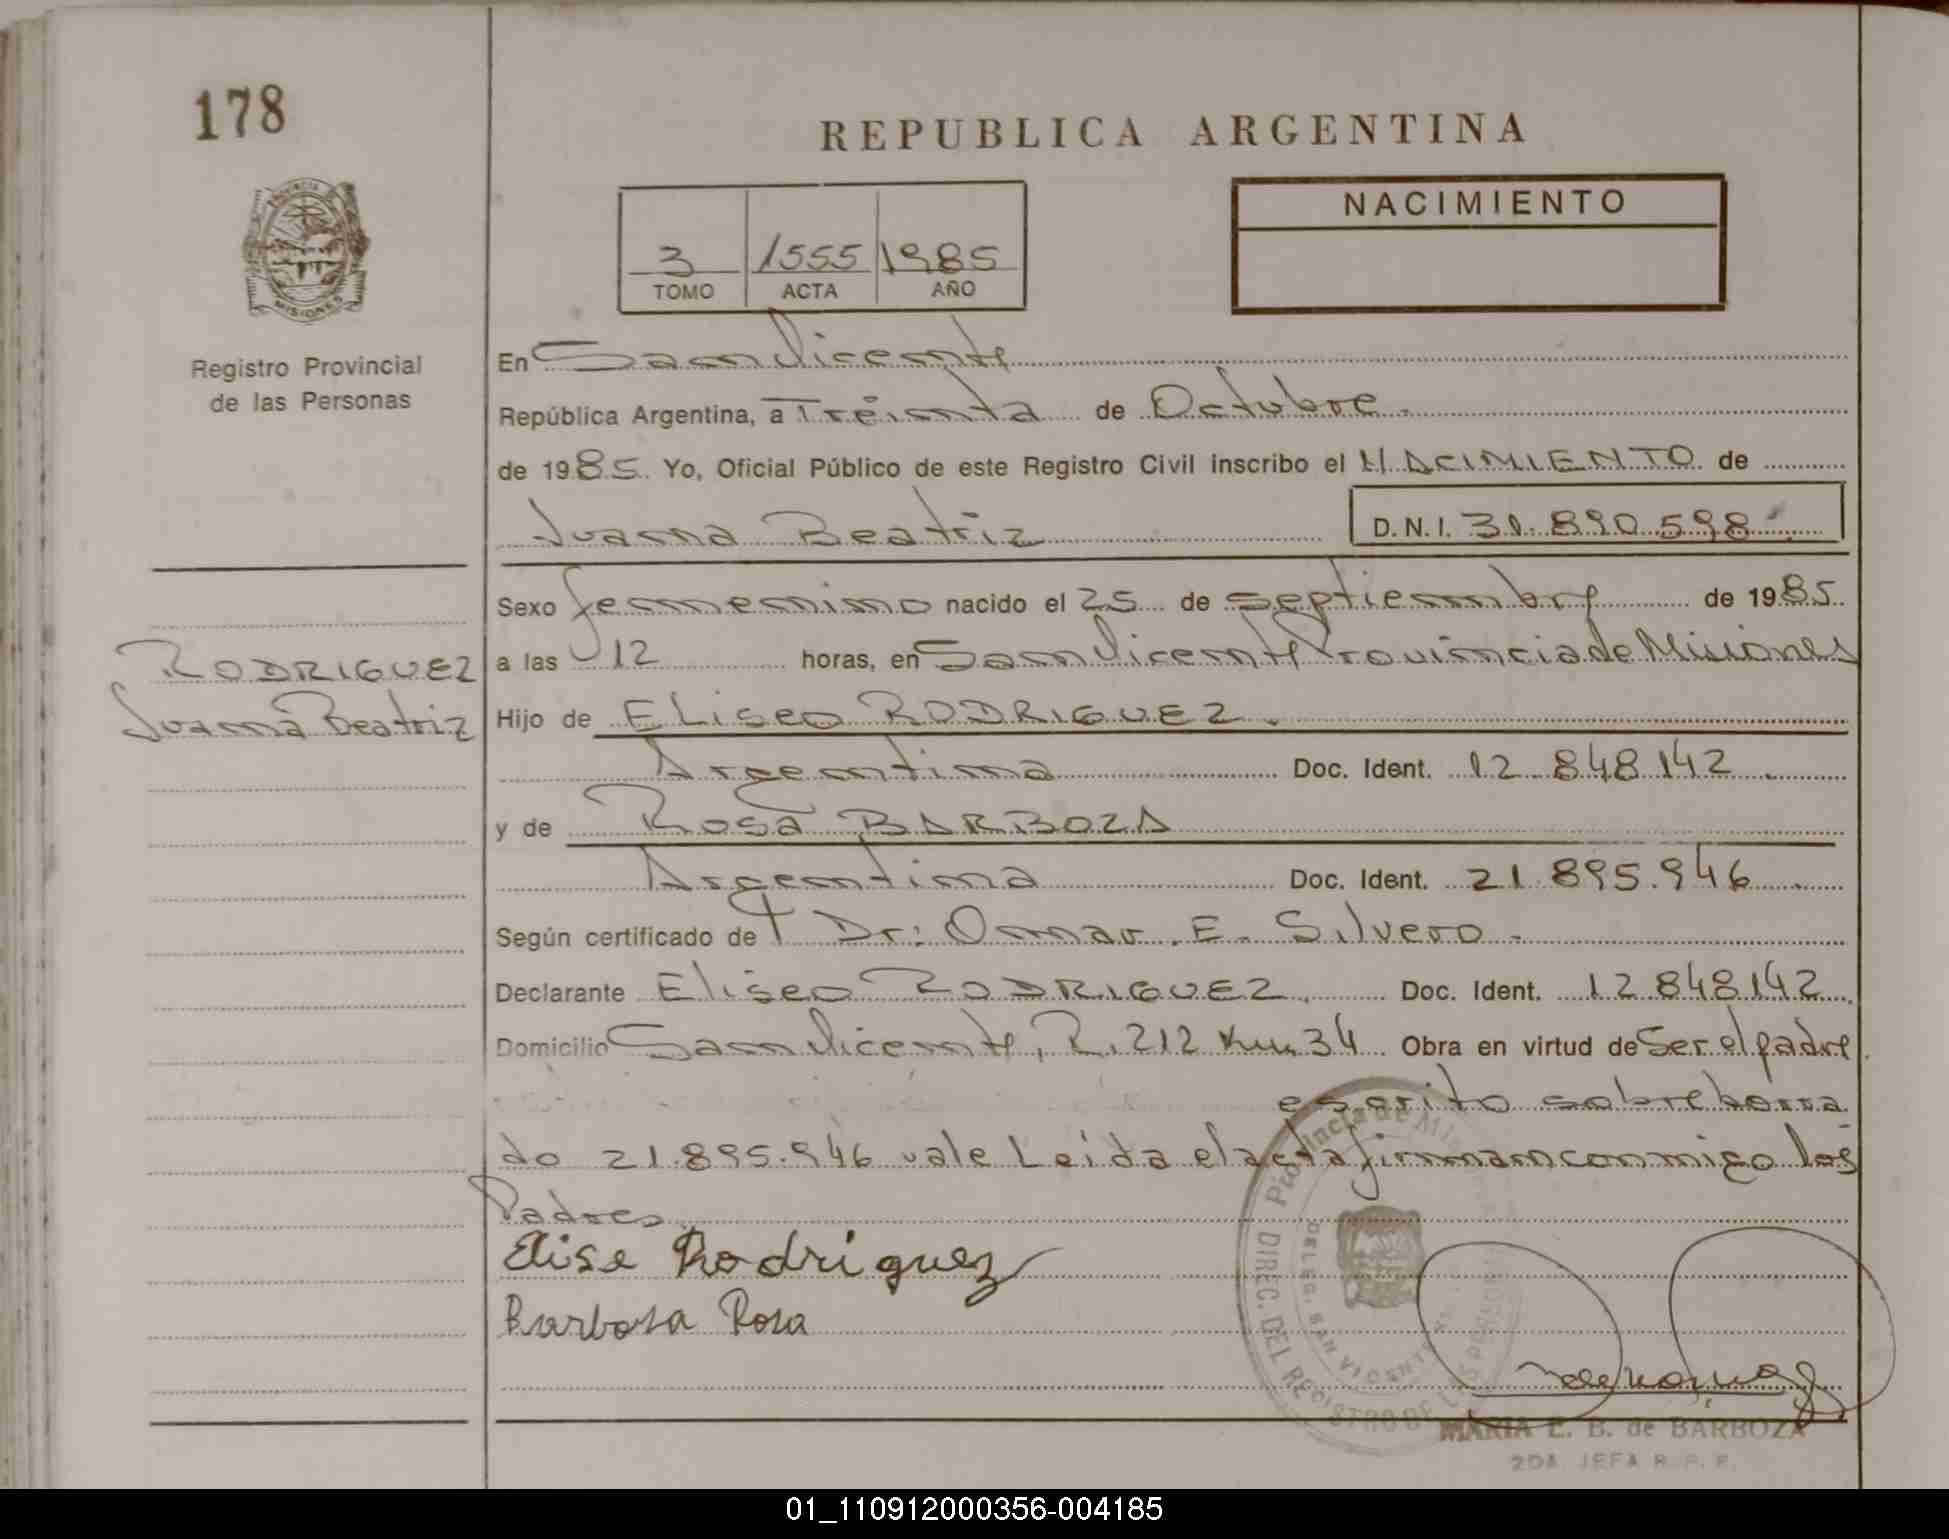 178
REPUBLICA ARGENTINA
PROVINCIA DE
MISIONES
Registro Provincial
de las Personas
3 1555 1985
TOMO ACTA AÑO
NACIMIENTO
En San Vicente
República Argentina, a Treinta de Octubre.
de 1985. Yo, Oficial Público de este Registro Civil inscribo el NACIMIENTO de
Juana Beatriz D.N.I. 31.890.598
Sexo femenino nacido el 25 de septiembre de 1985.
a las 12 horas, en San Vicente Provincia de Misiones
RODRIGUEZ
Juana Beatriz
Hijo de Eliseo RODRIGUEZ.
Argentina Doc. Ident. 12.848.142.
y de Rosa BARBOZA
Argentina Doc. Ident. 21.895.946
Según certificado de Dr: Omar E. Silvero.
Declarante Eliseo RODRIGUEZ. Doc. Ident. 12.848.142
Domicilio San Vicente, R. 212 Km 34 Obra en virtud de Ser el padre.
escrito sobre borra
do 21.895.946 vale Leida el acta firman conmigo los
Padres.
Elise Rodriguez
Barbosa Rosa
Provincia de Mi
DIREC. DEL REGISTRO DE LAS PERSONAS
DELEG. SAN VICENTE
MARIA E. B. de BARBOZA
2DA JEFA R. P. P.
01_110912000356-004185